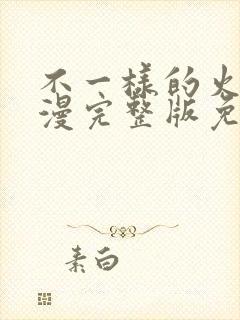 不一様的火
漫完整版免
素白